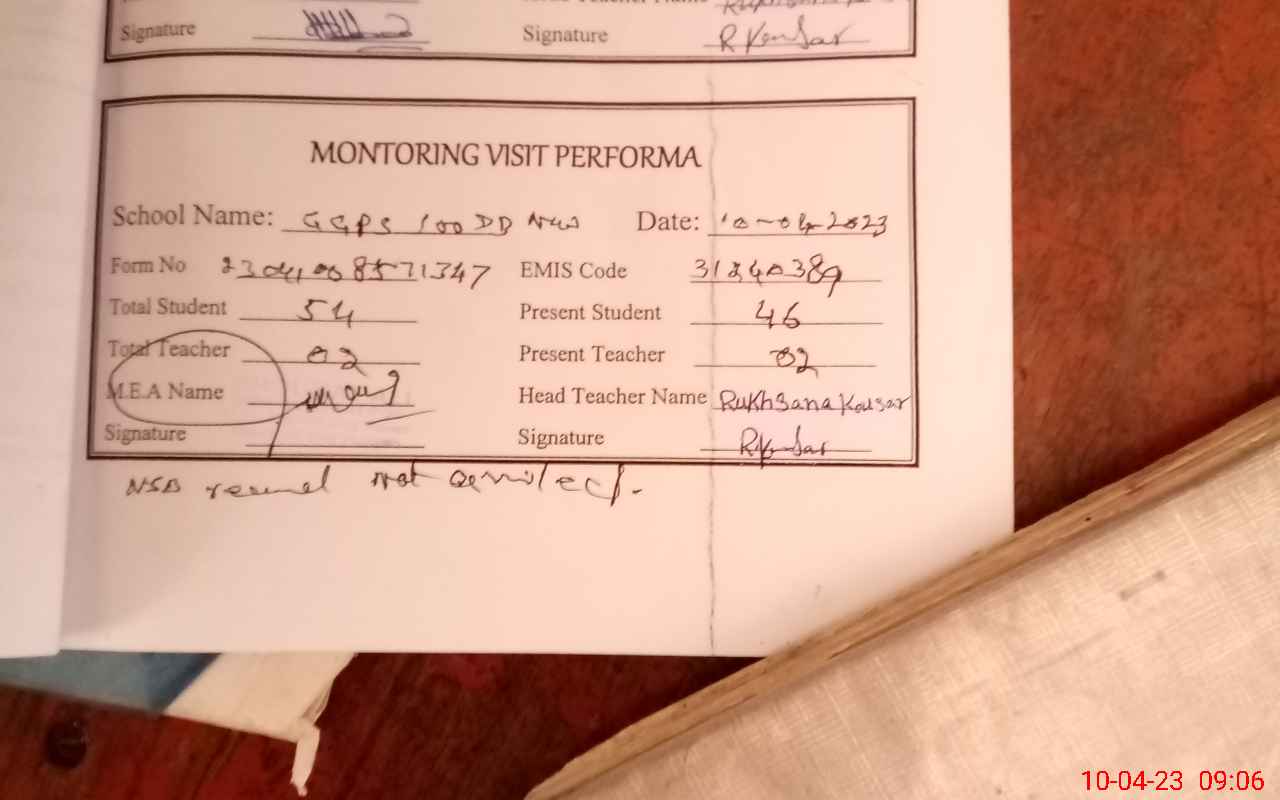 Signature Signature R Kousar
MONTORING VISIT PERFORMA
School Name: GGPS 100 DB Date: 10-04-2023
Form No EMIS Code 31240389
Total Student 54 Present Student 46
Total Teacher 02 Present Teacher 02
M.E.A Name Head Teacher Name Rukhsana Kousar
Signature Signature R.Kousar
NSB not
10-04-23 09:06